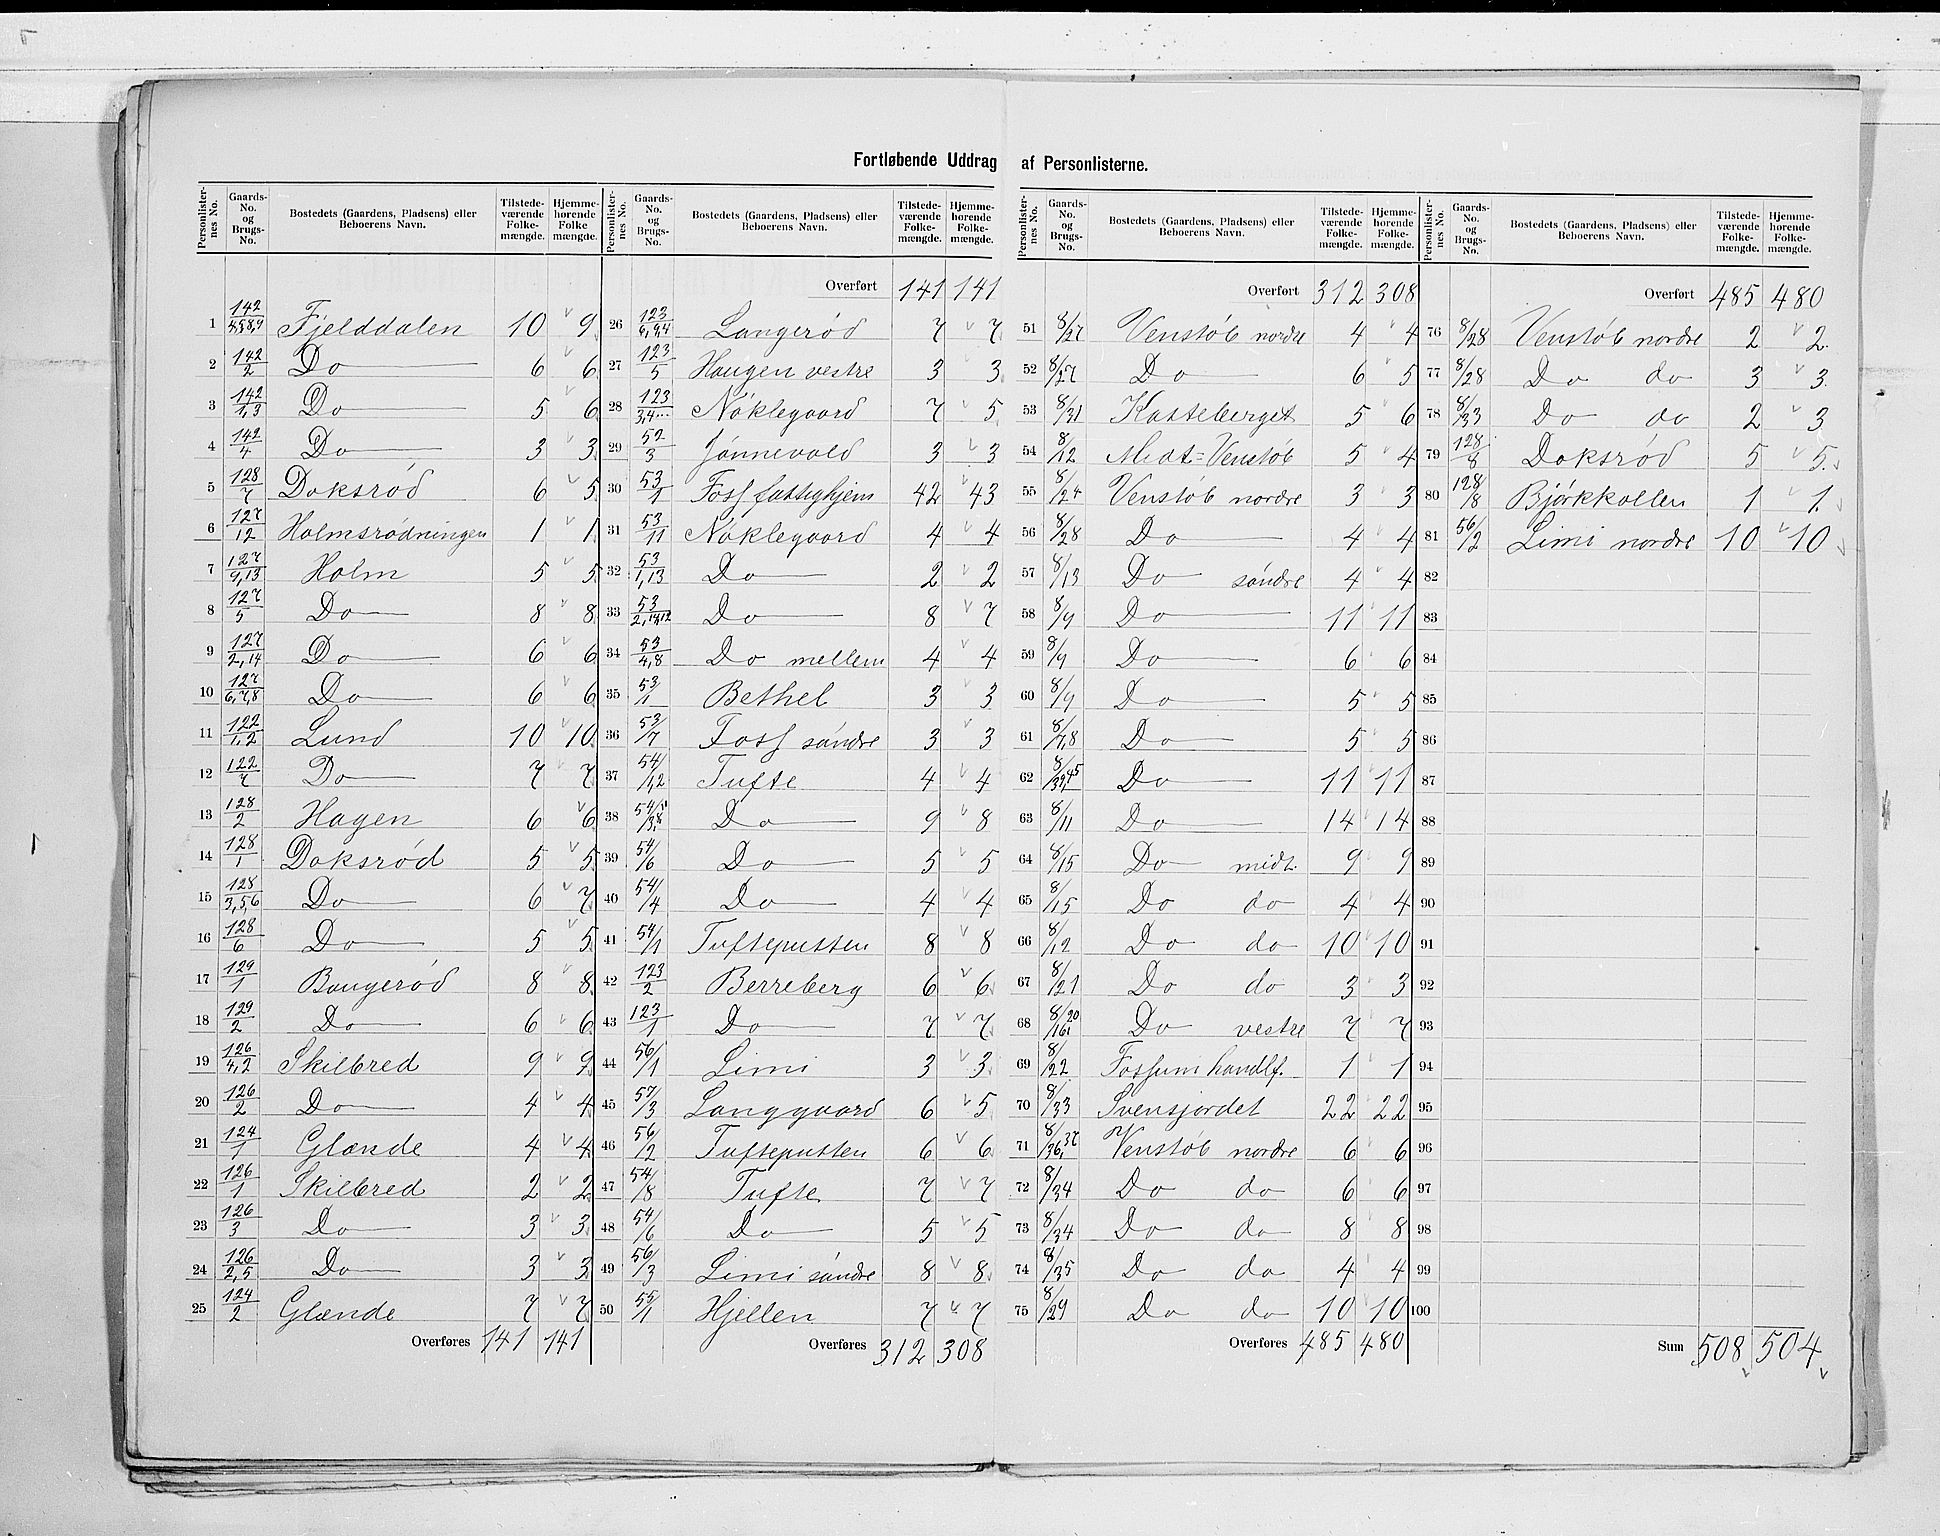 Fortløbende Uddrag af Personlisterne.
Personlister-nes No. Gaards-No. og Brugs-No. Bostedets (Gaardens, Pladsens) eller Beboerens Navn. Tilstede-værende Folke-mængde. Hjemme-hørende Folke mængde.
1 142/4,5,8,9 Fjelddalen 10 9
2 142/2 Do 6 6
3 142/1,3 Do 5 6
4 142/4 Do 3 3
5 128/7 Doksrød 6 5
6 127/12 Holmsrødningen 1 1
7 127/9,13 Holm 5 5
8 127/5 Do 8 8
9 127/2,14 Do 6 6
10 127/6,7,8 Do 6 6
11 122/1,2 Lund 10 10
12 122/7 Do 7 7
13 128/2 Hagen 6 6
14 128/1 Doksrød 5 5
15 128/3,5,6 Do 6 7
16 128/6 Do 5 5
17 129/1 Baugerød 8 8
18 129/2 Do 6 6
19 126/4,2 Skilbred 9 9
20 126/2 Do 4 4
21 124/1 Glænde 4 4
22 126/1 Skilbred 2 2
23 126/3 Do 3 3
24 126/2,5 Do 3 3
25 124/2 Glænde 7 7
Overføres 141 141
Personlister-nes No. Gaards-No. og Brugs-No. Bostedets (Gaardens, Pladsens) eller Beboerens Navn. Tilstede-værende Folke-mængde. Hjemme-hørende Folke-mængde.
Overført 141 141
26 123/6,9,4 Langerød 7 7
27 123/5 Haugen vestre 3 3
28 123/3,4... Nøklegaard 7 5
29 52/3 Jønnevald 3 3
30 53/1 Foss fattighjem 42 43
31 53/11 Nøklegaard 4 4
32 53/1,13 Do 2 2
33 53/2,12 Do 8 7
34 53/4,8 Do mellem 4 4
35 53/1 Bethel 3 3
36 53/7 Foss søndre 3 3
37 54/1,2 Tufte 4 4
38 54/3,8 Do 9 8
39 54/6 Do 5 5
40 54/4 Do 4 4
41 54/1 Tufteputten 8 8
42 123/2 Berreberg 6 6
43 123/1 Do 7 7
44 56/1 Limi 3 3
45 57/3 Langgaard 6 5
46 56/2 Tufteputten 6 6
47 54/8 Tufte 7 7
48 54/6 Do 5 5
49 56/3 Limi søndre 8 8
50 55/1 Hjellen 7 7
Overføres 312 308
Personlister-nes No. Gaards-No. og Brugs-No. Bostedets (Gaardens, Pladsens) eller Beboerens Navn. Tilstede-værende Folke-mængde. Hjemme-hørende Folke-mængde.
Overført 312 308
51 8/27 Venstøb nordre 4 4
52 8/27 Do 6 5
53 8/31 Kasteberget 5 6
54 8/12 Midt=Venstøb 5 4
55 8/24 Venstøb nordre 3 3
56 8/28 Do 4 4
57 8/13 Do søndre 4 4
58 8/9 Do 11 11
59 8/9 Do 6 6
60 8/9 Do 5 5
61 8/7,8 Do 5 5
62 8/39,45 Do 11 11
63 8/11 Do 14 14
64 8/15 Do midt. 9 9
65 8/15 Do do 4 4
66 8/12 Do do 10 10
67 8/21 Do do 3 3
68 8/16,20 Do vestre 7 7
69 8/22 Fossum handlf. 1 1
70 8/33 Svensjordet 22 22
71 8/36,37 Venstøb nordre 6 6
72 8/34 Do do 6 6
73 8/34 Do do 8 8
74 8/35 Do do 4 4
75 8/29 Do do 10 10
Overføres 485 480
Personlister-nes No. Gaards-No. og Brugs-No. Bostedets (Gaardens, Pladsens) eller Beboerens Navn. Tilstede-værende Folke-mængde. Hjemme-hørende Folke-mængde.
Overført 485 480
76 8/28 Venstøb nordre 2 2
77 8/28 Do do 3 3
78 8/33 Do do 2 3
79 128/8 Doksrød 5 5
80 128/8 Bjørkkollen 1 1
81 56/2 Limi nordre 10 10
82
83
84
85
86
87
88
89
90
91
92
93
94
95
96
97
98
99
100
Sum 508 504